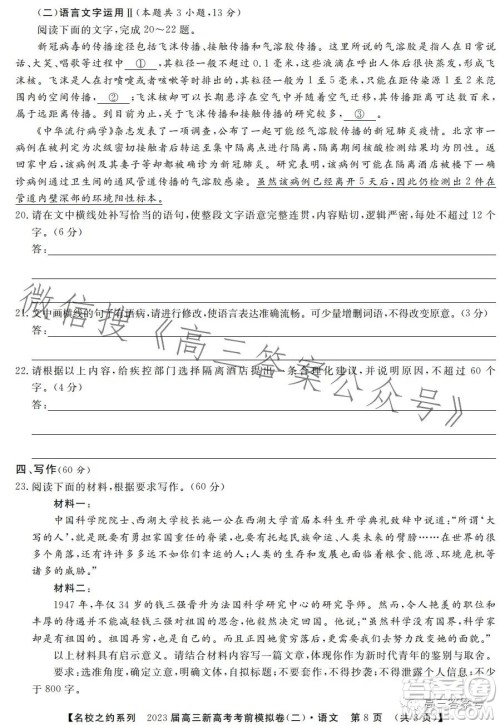 (二)语言文字运用Ⅱ(本题共3小题,13分)
阅读下面的文字,完成20～22题。
新冠病毒的传播途径包括飞沫传播、接触传播和气溶胶传播。这里所说的气溶胶是指人在说
话、大笑、唱歌等过程中 ① ,其粒径一般不超过0.1毫米,这些液滴在呼出人体后很快蒸发,变成飞
沫核。飞沫是人在打喷嚏或者咳嗽等时排出的,其粒径一般为1至5毫米,只能在距传染源1至2米
的范围内扩散, ② ;飞沫核却可以长期悬浮在空气中并随着空气迁移,其传播距离可达数百米,
属于远距离传播。到目前为止,飞沫传播和接触传播的研究已有很多, ③ 。
《中华流行病学》杂志发表了一项调查,公布了一起可能经气溶胶传播的新冠肺炎疫情。北京市一
病例在被判定为次级密切接触者后转运至集中隔离点进行隔离,隔离期间核酸检测结果均为阴性。返
回家中后,该病例及其妻子等却都被确诊为新冠肺炎。研究表明,该病例可能在隔离酒店被楼下一确
诊病例通过卫生间的通风管道传播的气溶胶感染。虽然该病例已经离开5天后,因此仍检测出2件在
管道内壁深部的环境阳性标本。
20.请在文中横线处补写恰当的语句,使整段文字语意完整连贯,内容贴切,逻辑严密,每处不超过12个
字。(6分)
答:
21.文中画横线的句子有语病,请进行修改,使语言表达准确流畅。可少量增删词语,不得改变原意。(3分)
答:
22.请根据以上内容,给疾控部门选择隔离酒店提出一条合理化建议,并说明原因,不超过60个
字。(4分)
答:
微信搜《高三答案公众号》
四、写作(60分)
23.阅读下面的材料,根据要求写作。(60分)
材料一:
中国科学院院士、西湖大学校长施一公在西湖大学首届本科生开学典礼致辞中说道:“所谓‘大
写的人’,就是既要有勇担家国重任的脊梁,也要有托起民族命运、人类未来的臂膀……在世界的很
多个角落,还有许许多多远不如你们幸运的人;人类的生存和发展也面临着粮食、能源、环境危机等
诸多困境!”
材料二:
1947年,年仅34岁的钱三强晋升为法国科学研究中心的研究导师。然而,令人艳羡的职位和
丰厚的待遇并不能减弱钱三强对祖国的思念,他毅然决定回国。他说:“虽然科学没有国界,科学家
却是有祖国的。祖国再穷,是自己的,而且正因为她贫穷落后,更需要我们去努力改变她的面貌。”
以上材料具有启示意义。请结合材料内容写一篇文章,体现你作为新时代青年的追求。
要求:选准角度,确定立意,明确文体,自拟标题;不要套作,不得抄袭;不得泄露个人信息;不少
于800字。
【名校之约系列 2023届高三新高考考前模拟卷(二)·语文 第8页 (共8页)】